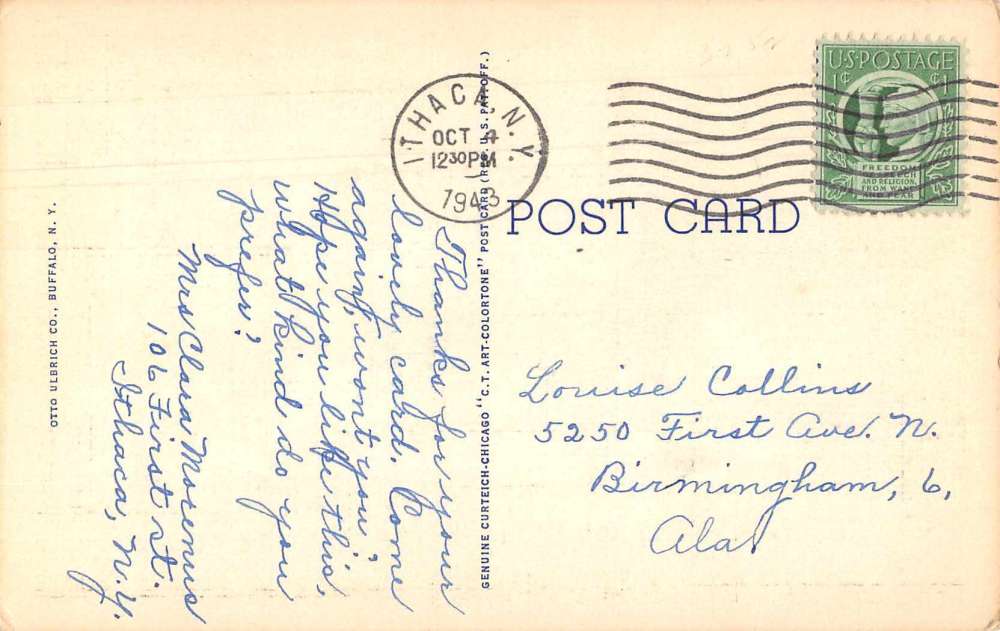 OTTO ULBRICH CO., BUFFALO, N. Y.
Thanks for your
lovely card. Come
again, won't you?
Hope you like this.
what kind do you
prefer?
Mrs Clara Mocenus
106 First st.
Ithaca, N.Y.
GENUINE CURTEICH-CHICAGO "C.T. ART-COLORTONE" POST CARD (REG. U.S. PAT. OFF.)
ITHACA, N.Y.
OCT 4
12 30 PM
1943
U·S·POSTAGE
1¢ ¢1
FREEDOM
OF SPEECH
AND RELIGION,
FROM WANT
AND FEAR
POST CARD
Louise Collins
5250 First Ave. N.
Birmingham, 6,
Ala.